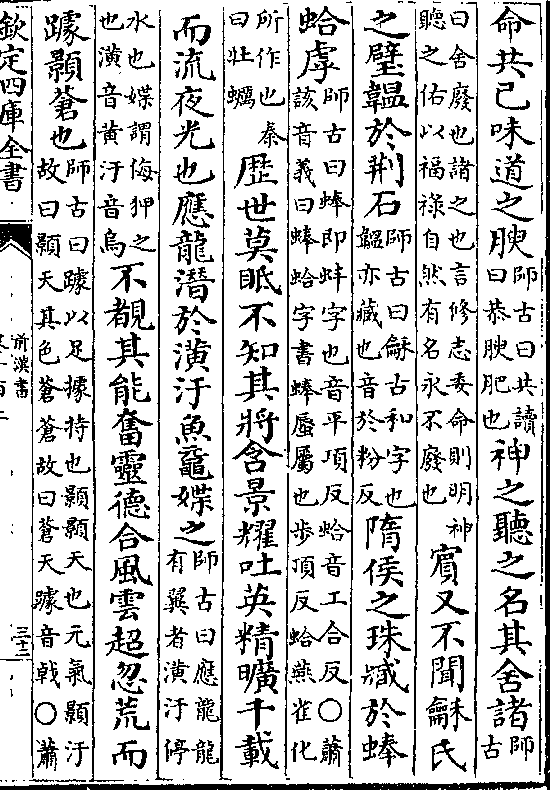 命共己味道之腴師古曰共讀曰恭腴肥也神之聽之名其舍諸師古
曰舍廢也諸之也言修志委命則明神聽之佑以福祿自然有名永不廢也賓又不聞龢氏
之璧韞於荆石師古曰龢古和字也韞亦藏也音於粉反隋侯之珠藏於蜯
蛤虖師古曰蜯即蚌字也音平項反蛤音工合反○蕭該音義曰蜯蛤字書蜯蜃屬也步項反蛤燕雀化
所作也秦曰牡蠣歴世莫眡不知其將含景耀吐英精曠千載
而流夜光也應龍潛於潢汙魚黿媟之師古曰應龍龍有翼者潢汙停
水也媟謂侮狎之也潢音黄汙音烏不覩其能奮靈德合風雲超忽荒而
躆顥蒼也師古曰躆以足據持也顥顥天也元氣顥汙故曰顥天其色蒼蒼故曰蒼天躆音戟○蕭
欽定四庫全書
前漢書
三十二